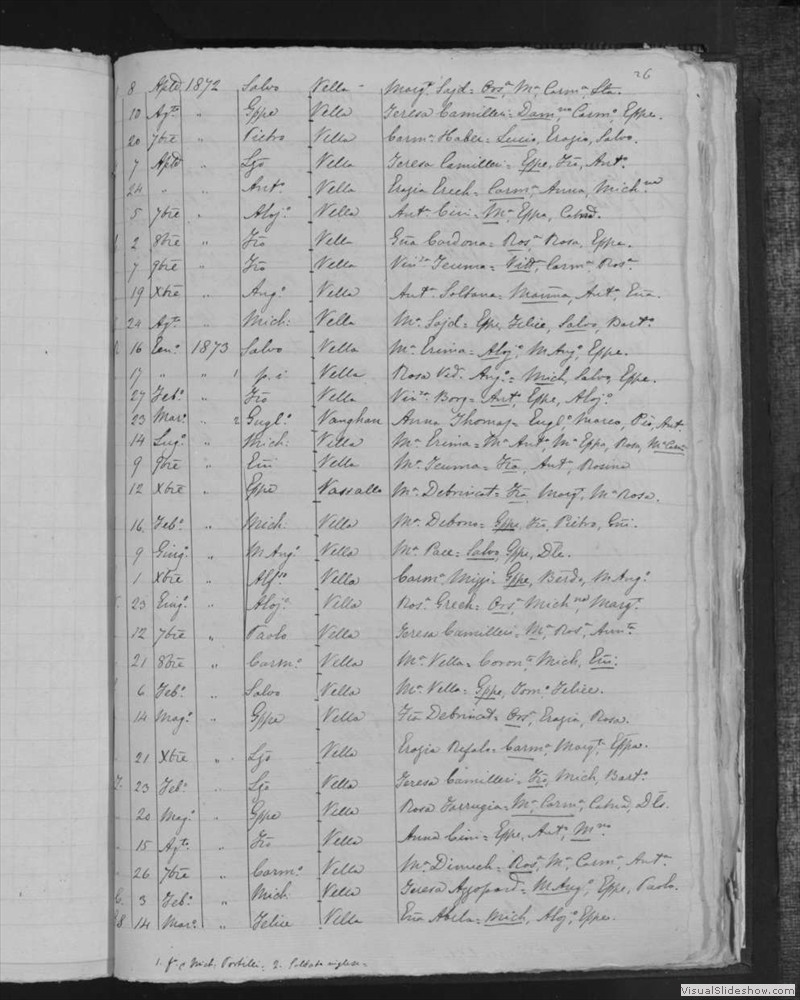 26
8 Aple 1872 Salvo Vella - Margt. Sajd = Ors.a Ma. Carma. Sta.
10 Agto. " Gppe Vella Teresa Camilleri = Domna. Carmo. Eppe.
20 7bre " Pietro Vella Carma. Haber = Lucia, Erazia, Salvo.
7 Aple " Lzo Vella Teresa Camilleri = Gppe, Fra, Anta.
24 " " Anto. Vella Erazia Erech = Carma. Anna, Michna.
5 7bre " Aloj. Vella Anta. Cini = Ma. Eppa, Catnd.
2 8bre " Fro Vella Gna Cardona = Rosa. Rosa, Eppa.
7 9bre " Fro Vella Vinza. Teuma = Vitt, Carma. Rosa.
19 Xbre " Ango. Vella Anta. Soltana = Marina, Anta. Ena.
24 Agto. " Mich: Vella Ma. Sajd = Eppe, Felice, Salvo, Barto.
16 Eeno. 1873 Salvo Vella Ma. Erima = Aloja. M Ango. Eppe.
17 " " 1 p. i Vella Rosa Vid. Ango. = Mich, Salvo, Eppe.
27 Febo. " Fro Vella Vinza. Borg = Anta. Eppe, Alojo.
23 Maro. " 2 Gugl.o Vaughan Anna Thomas = Engl.o Marco, Pio, Ant.
14 Lugo. " Mich: Vella Ma. Erima = Ma. Anta. Ma. Eppa, Rosa, Ma. Carm
9 9bre " Em Vella Ma. Teuma = Fra, Anta. Rosina
12 Xbre " Eppe Vassallo Ma. Debrincat = Fra, Margt. Ma. Rosa.
16 Febo. " Mich: Vella Ma. Debono = Gppe, Fro, Pietro, Eni.
9 Giugo. " M Ango. Vella Ma. Pace = Salvo, Gpe, Dla.
1 Xbre " Alfso Vella Carma. Mizzi = Gppe, Berdo, M Ango.
23 Eiugo. " Alojo. Vella Rosa. Grech = Orsa. Michna, Margt.
12 7bre " Paolo Vella Teresa Camilleri = Ma. Rosa. Annta.
21 8bre " Carmo. Vella Ma. Vella = Coronta. Mich, Em:
6 Febo. " Salvo Vella Ma. Vella = Gppe, Tomo. Felice.
14 Mago. " Gppe Vella Fra Debrincat = Orsa. Erazia, Rosa.
21 Xbre " Lzo Vella Erazia Refalo = Carma. Margt. Eppa.
23 Febo. " Lzo Vella Teresa Camilleri = Fro, Mich, Barto.
20 Mago. " Gppe Vella Rosa Farrugia = Ma. Carma. Catnd, Dla.
15 Agto. " Fro Vella Anna Cini = Eppe, Anto. Mna
26 7bre " Carmo. Vella Ma. Dimech = Rosa. Ma. Carma. Anta.
3 Febo. " Mich Vella Teresa Azzopard = M Ango. Eppe, Paolo.
14 Maro. " Felice Vella Ena Abela = Mich, Alojo. Eppe.
1. f.o Mich. Portelli. 2. Soldato inglese
VisualSlideshow.com